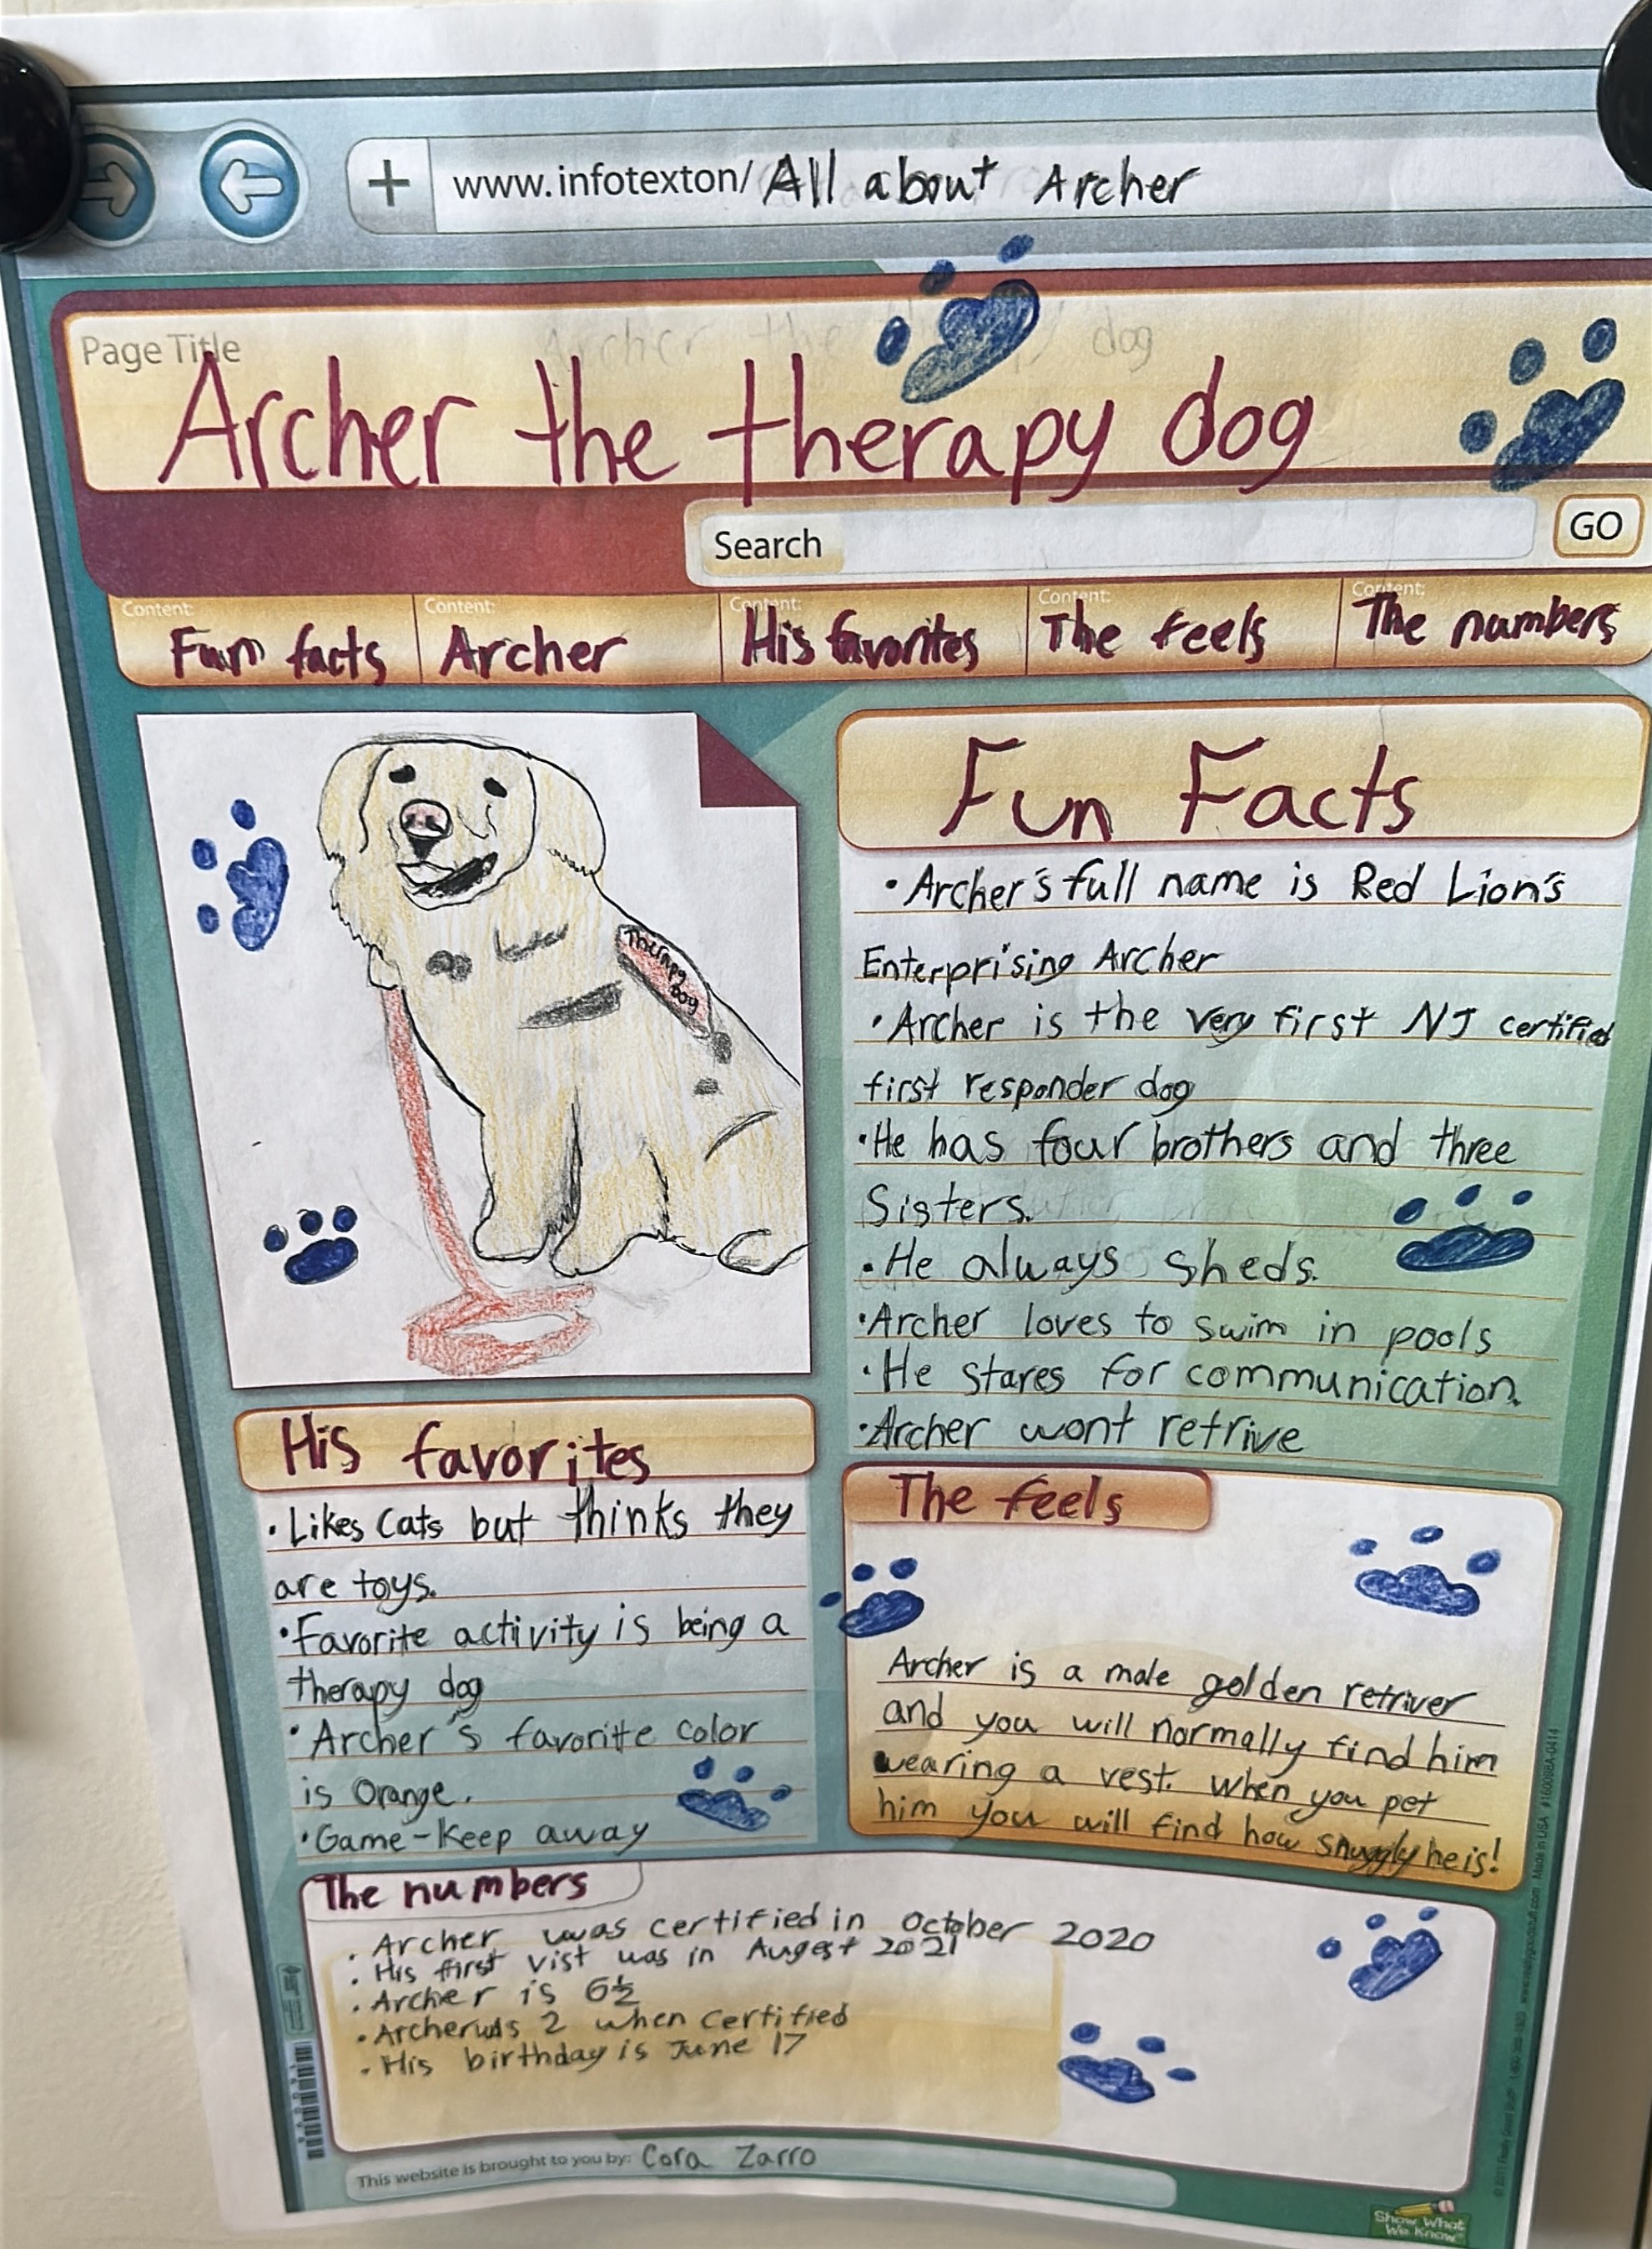 www.infotexton/All about Archer
Page Title
Archer the therapy dog
Archer the therapy dog
Search
GO
Content:
Fun facts
Content:
Archer
Content:
His favorites
Content:
The feels
Content:
The numbers
Therapy
Dog
Fun Facts
• Archer's full name is Red Lion's
Enterprising Archer
• Archer is the very first NJ certified
first responder dog
• He has four brothers and three
Sisters.
• He always sheds.
• Archer loves to swim in pools
• He stares for communication.
• Archer wont retrive
His favorites
• Likes cats but thinks they
are toys.
• Favorite activity is being a
therapy dog
• Archer's favorite color
is Orange.
• Game-Keep away
The feels
Archer is a male golden retriver
and you will normally find him
wearing a vest. When you pet
him you will find how snuggly he is!
The numbers
• Archer was certified in October 2020
• His first vist was in Augest 2021
• Archer is 6½
• Archer was 2 when certified
• His birthday is June 17
This website is brought to you by: Cora Zarro
Show What
We Know
Made in USA #160098A-0414